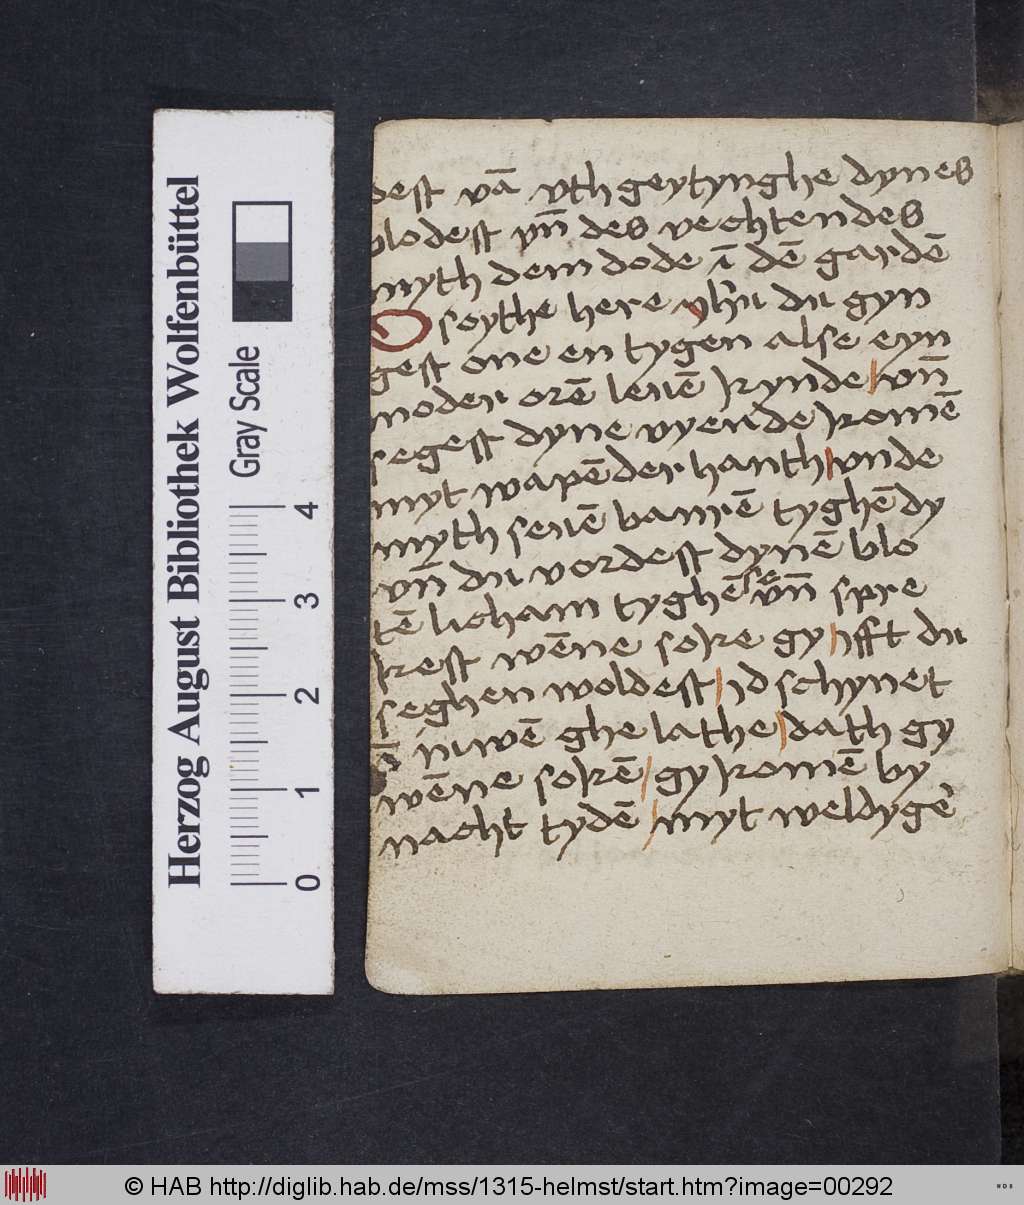 dest vā vth geytynghe dynes
blodest vn̄ des vechtendes
myth dem dode ī dē gardē
O soythe here yhū du gyn
gest one en tygen alse eyn
moder orē leuē kynde vn̄
segest dyne vyende komē
myt wapēder hanth vnde
myth seuē banrē tyghē dy
vn̄ du vordest dynē blo
tē licham tyghē se vn̄ spre
kest wēne soke gy ifft du
seghen woldest id schynet
n̄ nuwē ghe lathe dath gy
wēne sokē gy komē by
nacht tydē myt weldygē
Herzog August Bibliothek Wolfenbüttel
Gray Scale
0 1 2 3 4
© HAB http://diglib.hab.de/mss/1315-helmst/start.htm?image=00292